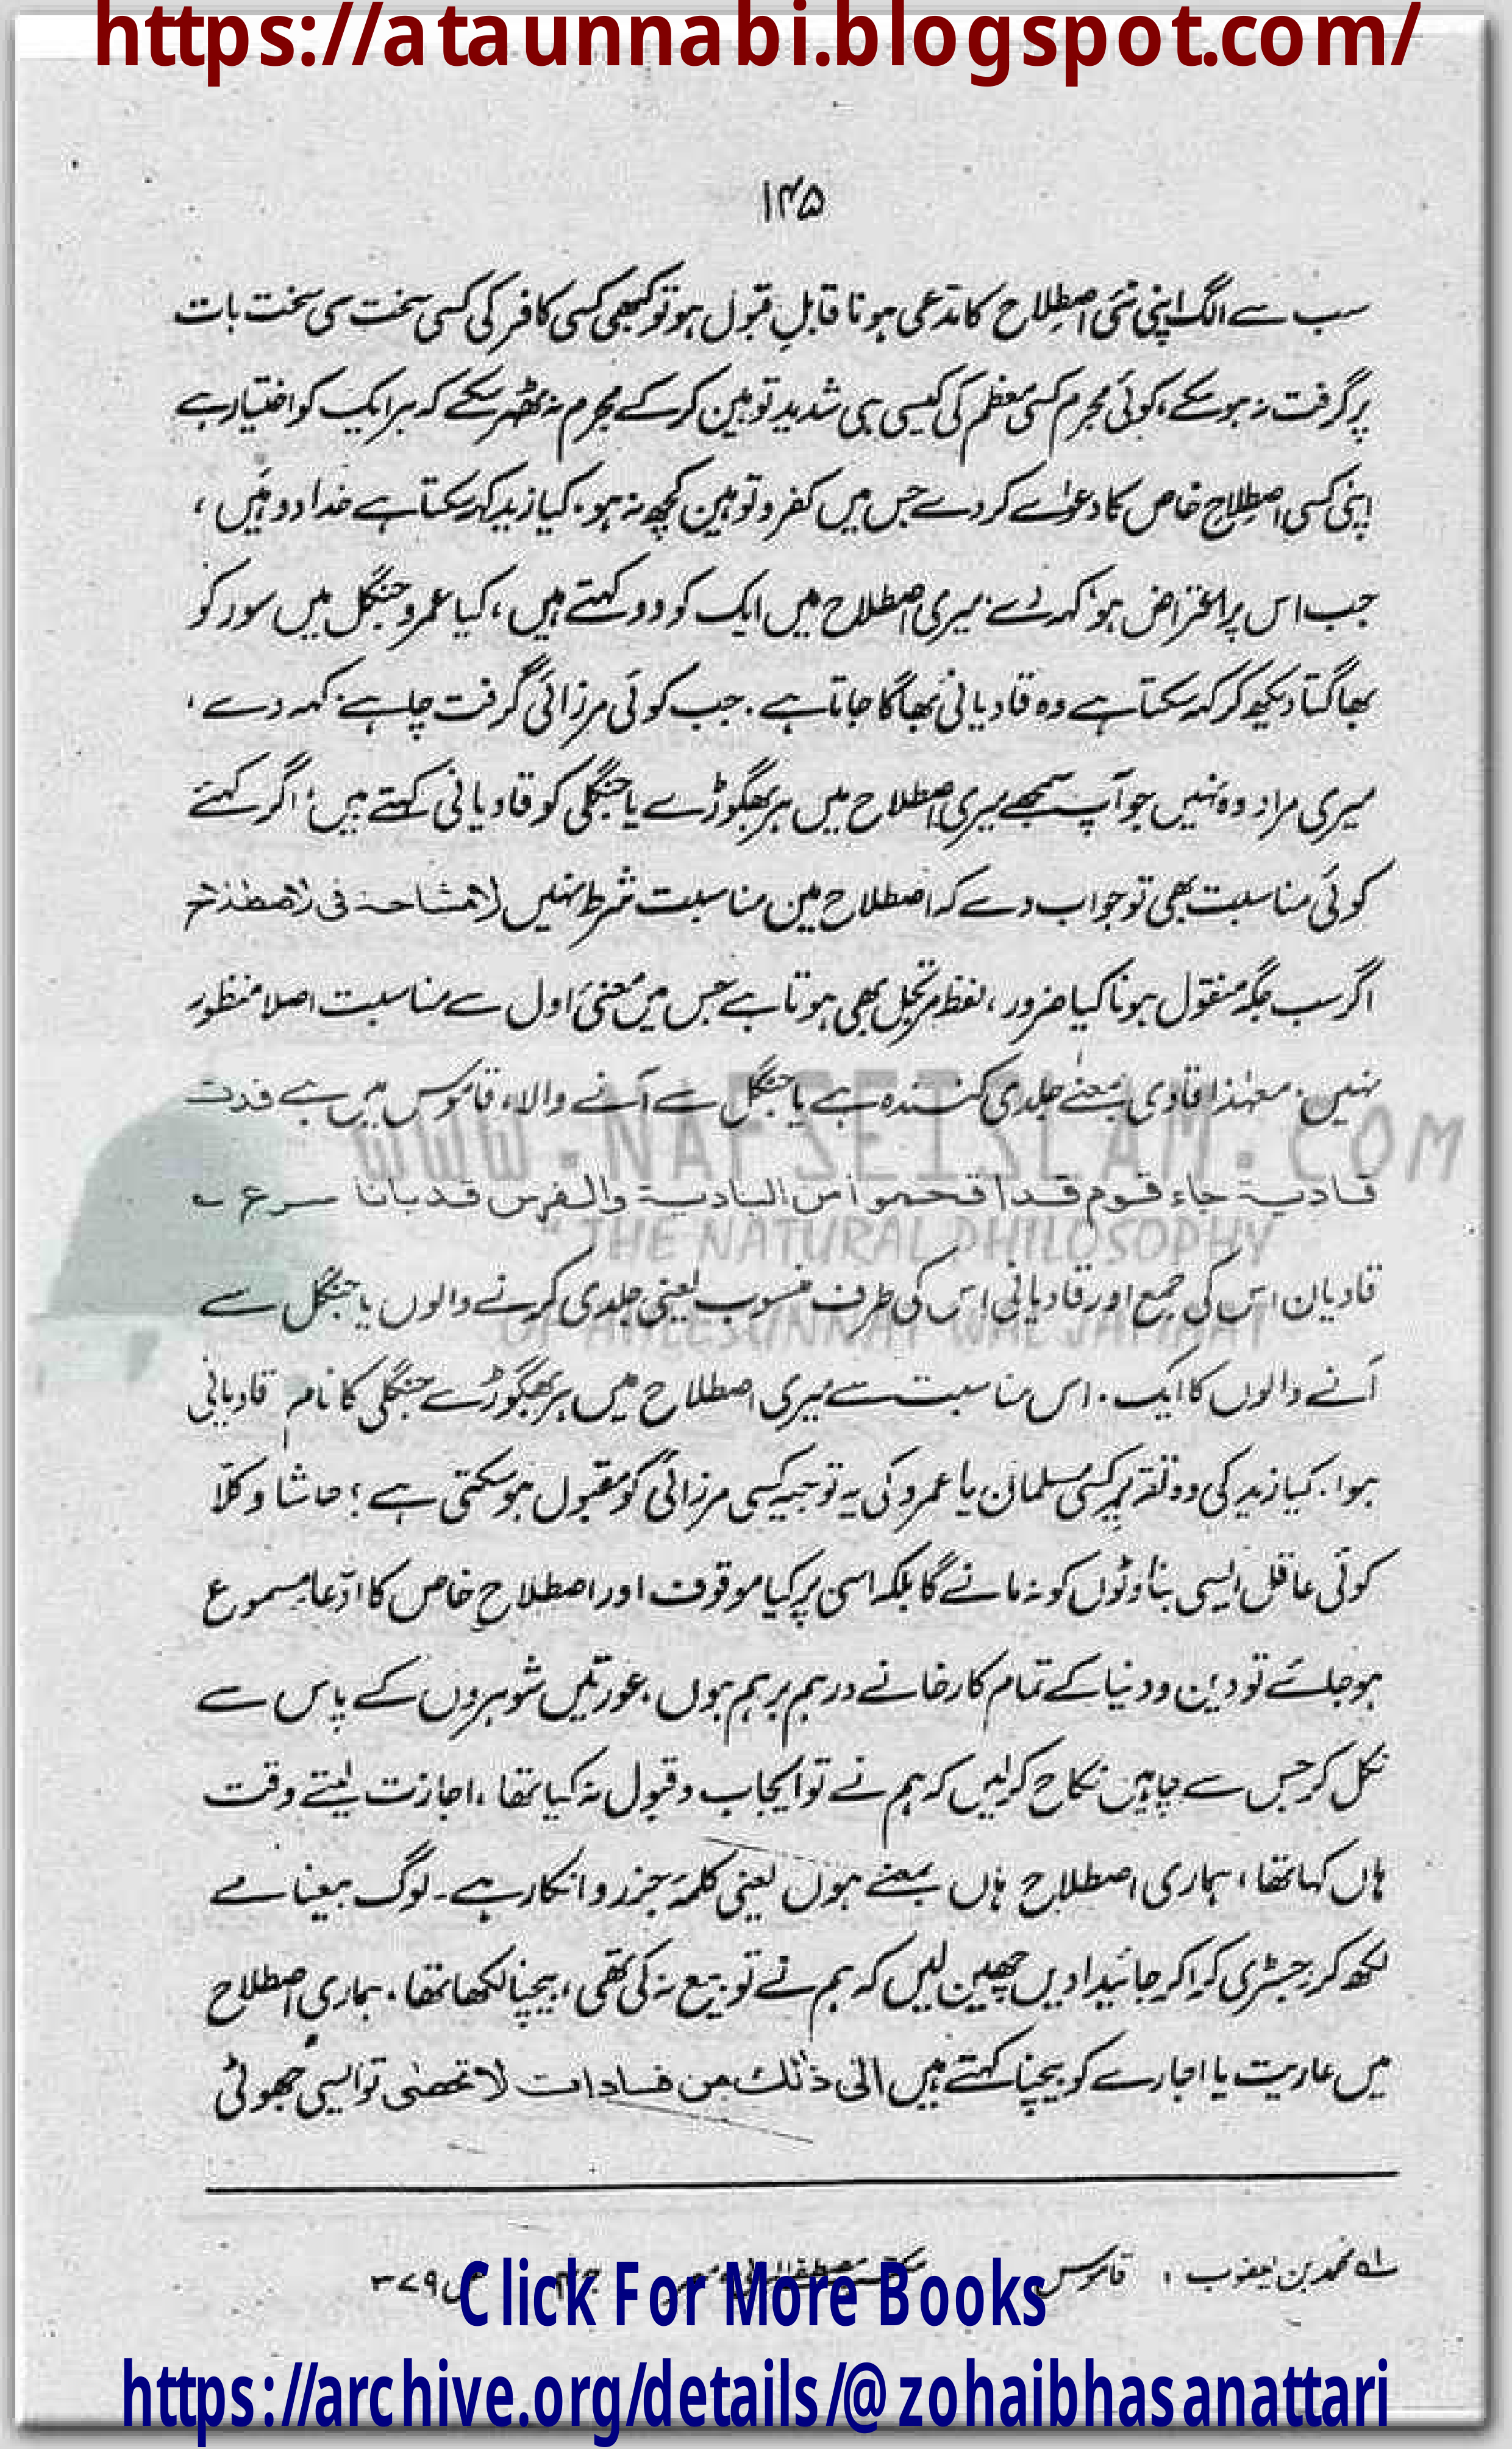 https://ataunnabi.blogspot.com/
۱۴۵
سب سے الگ اپنی نئی اصطلاح کا مدعی ہونا قابلِ قبول ہو تو کبھی کسی کافر کی کسی سخت سی سخت بات
پر گرفت نہ ہوسکے، کوئی مجرم کسی معظم کی کیسی ہی شدید توہین کرکے مجرم نہ ٹھہر سکے کہ ہر ایک کو اختیار ہے
اپنی کسی اصطلاحِ خاص کا دعوٰے کردے جس میں کفر و توہین کچھ نہ ہو، کیا زید کہہ سکتا ہے خدا دو ہیں،
جب اس پر اعتراض ہو کہہ دے میری اصطلاح میں ایک کو دو کہتے ہیں، کیا عمرو جنگل میں سور کو
بھاگتا دیکھ کر کہہ سکتا ہے وہ قادیانی بھاگا جاتا ہے۔ جب کوئی مرزائی گرفت چاہے کہہ دے،
میری مراد وہ نہیں جو آپ سمجھے میری اصطلاح میں ہر بھگوڑے یا جنگلی کو قادیانی کہتے ہیں، اگر کہئے
کوئی مناسبت بھی تو جواب دے کہ اصطلاح میں مناسبت شرط نہیں لا مشاحۃ فی الاصطلاح
اگر سب جگہ منقول ہونا کیا ضرور، لفظ مرتجل بھی ہوتا ہے جس میں معنیٔ اول سے مناسبت اصلا منظور
نہیں۔ معہٰذا قادی بمعنے جلدی کنندہ ہے یا جنگل سے آنے والا، قاموس میں ہے قدت
قادیۃ جاء قوم قد اقحموا من البادیۃ والفرس قدیانا سرع لہ
قادیان اس کی جمع اور قادیانی اس کی طرف منسوب یعنی جلدی کرنے والوں یا جنگل سے
آنے والوں کا ایک۔ اس مناسبت سے میری اصطلاح میں ہر بھگوڑے جنگلی کا نام قادیانی
ہوا۔ کیا زید کی وہ تقریر کسی مسلمان یا عمرو کی یہ توجیہ کسی مرزائی کو مقبول ہوسکتی ہے؟ حاشا وکلّا
کوئی عاقل ایسی بناوٹوں کو نہ مانے گا بلکہ اسی پر کیا موقوف اور اصطلاحِ خاص کا ادّعا مسموع
ہوجائے تو دین ودنیا کے تمام کارخانے درہم برہم ہوں، عورتیں شوہروں کے پاس سے
نکل کر جس سے چاہیں نکاح کرلیں کہ ہم نے تو ایجاب وقبول نہ کیا تھا، اجازت لیتے وقت
ہاں کہا تھا، ہماری اصطلاح ہاں بمعنے ہوں یعنی کلمۂ جزر و انکار ہے۔ لوگ بیعنامے
لکھ کر رجسٹری کرا کر جائیدادیں چھین لیں کہ ہم نے تو بیع نہ کی تھی، بیچنا لکھا تھا، ہماری اصطلاح
میں عاریت یا اجارے کو بیچنا کہتے ہیں الٰی ذٰلک من فسادات لاتحصٰی تو ایسی جھوٹی
WWW.NAFSEISLAM.COM
"THE NATURAL PHILOSOPHY
OF AHLESUNNAT WAL JAMAAT"
لہ محمد بن یعقوب : قاموس ص ۳۷۹
Click For More Books
https://archive.org/details/@zohaibhasanattari